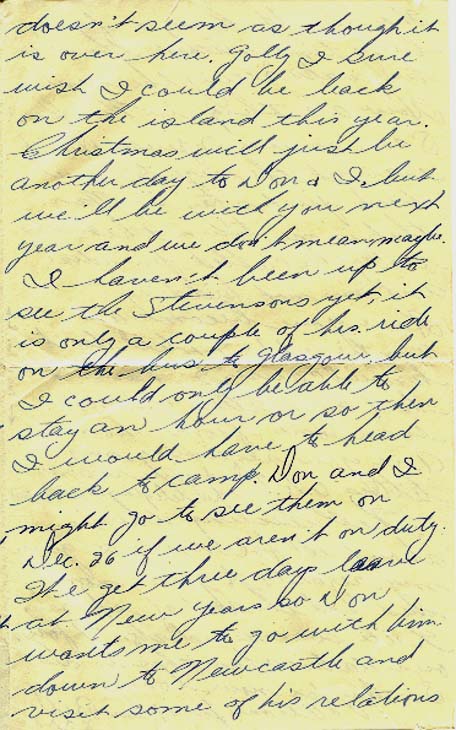 doesn't seem as though it
is over here. Golly I sure
wish I could be back
on the island this year.
Christmas will just be
another day to Don & I, but
we'll be with you next
year and we don't mean maybe.
I haven't been up to
see the Stevensons yet, it
is only a couple of hrs. ride
on the bus to Glasgow, but
I could only be able to
stay an hour or so then
I would have to head
back to camp. Don and I
might go to see them on
Dec. 26 if we aren't on duty.
We get three days leave
at New Years so Don
wants me to go with him
down to Newcastle and
visit some of his relations